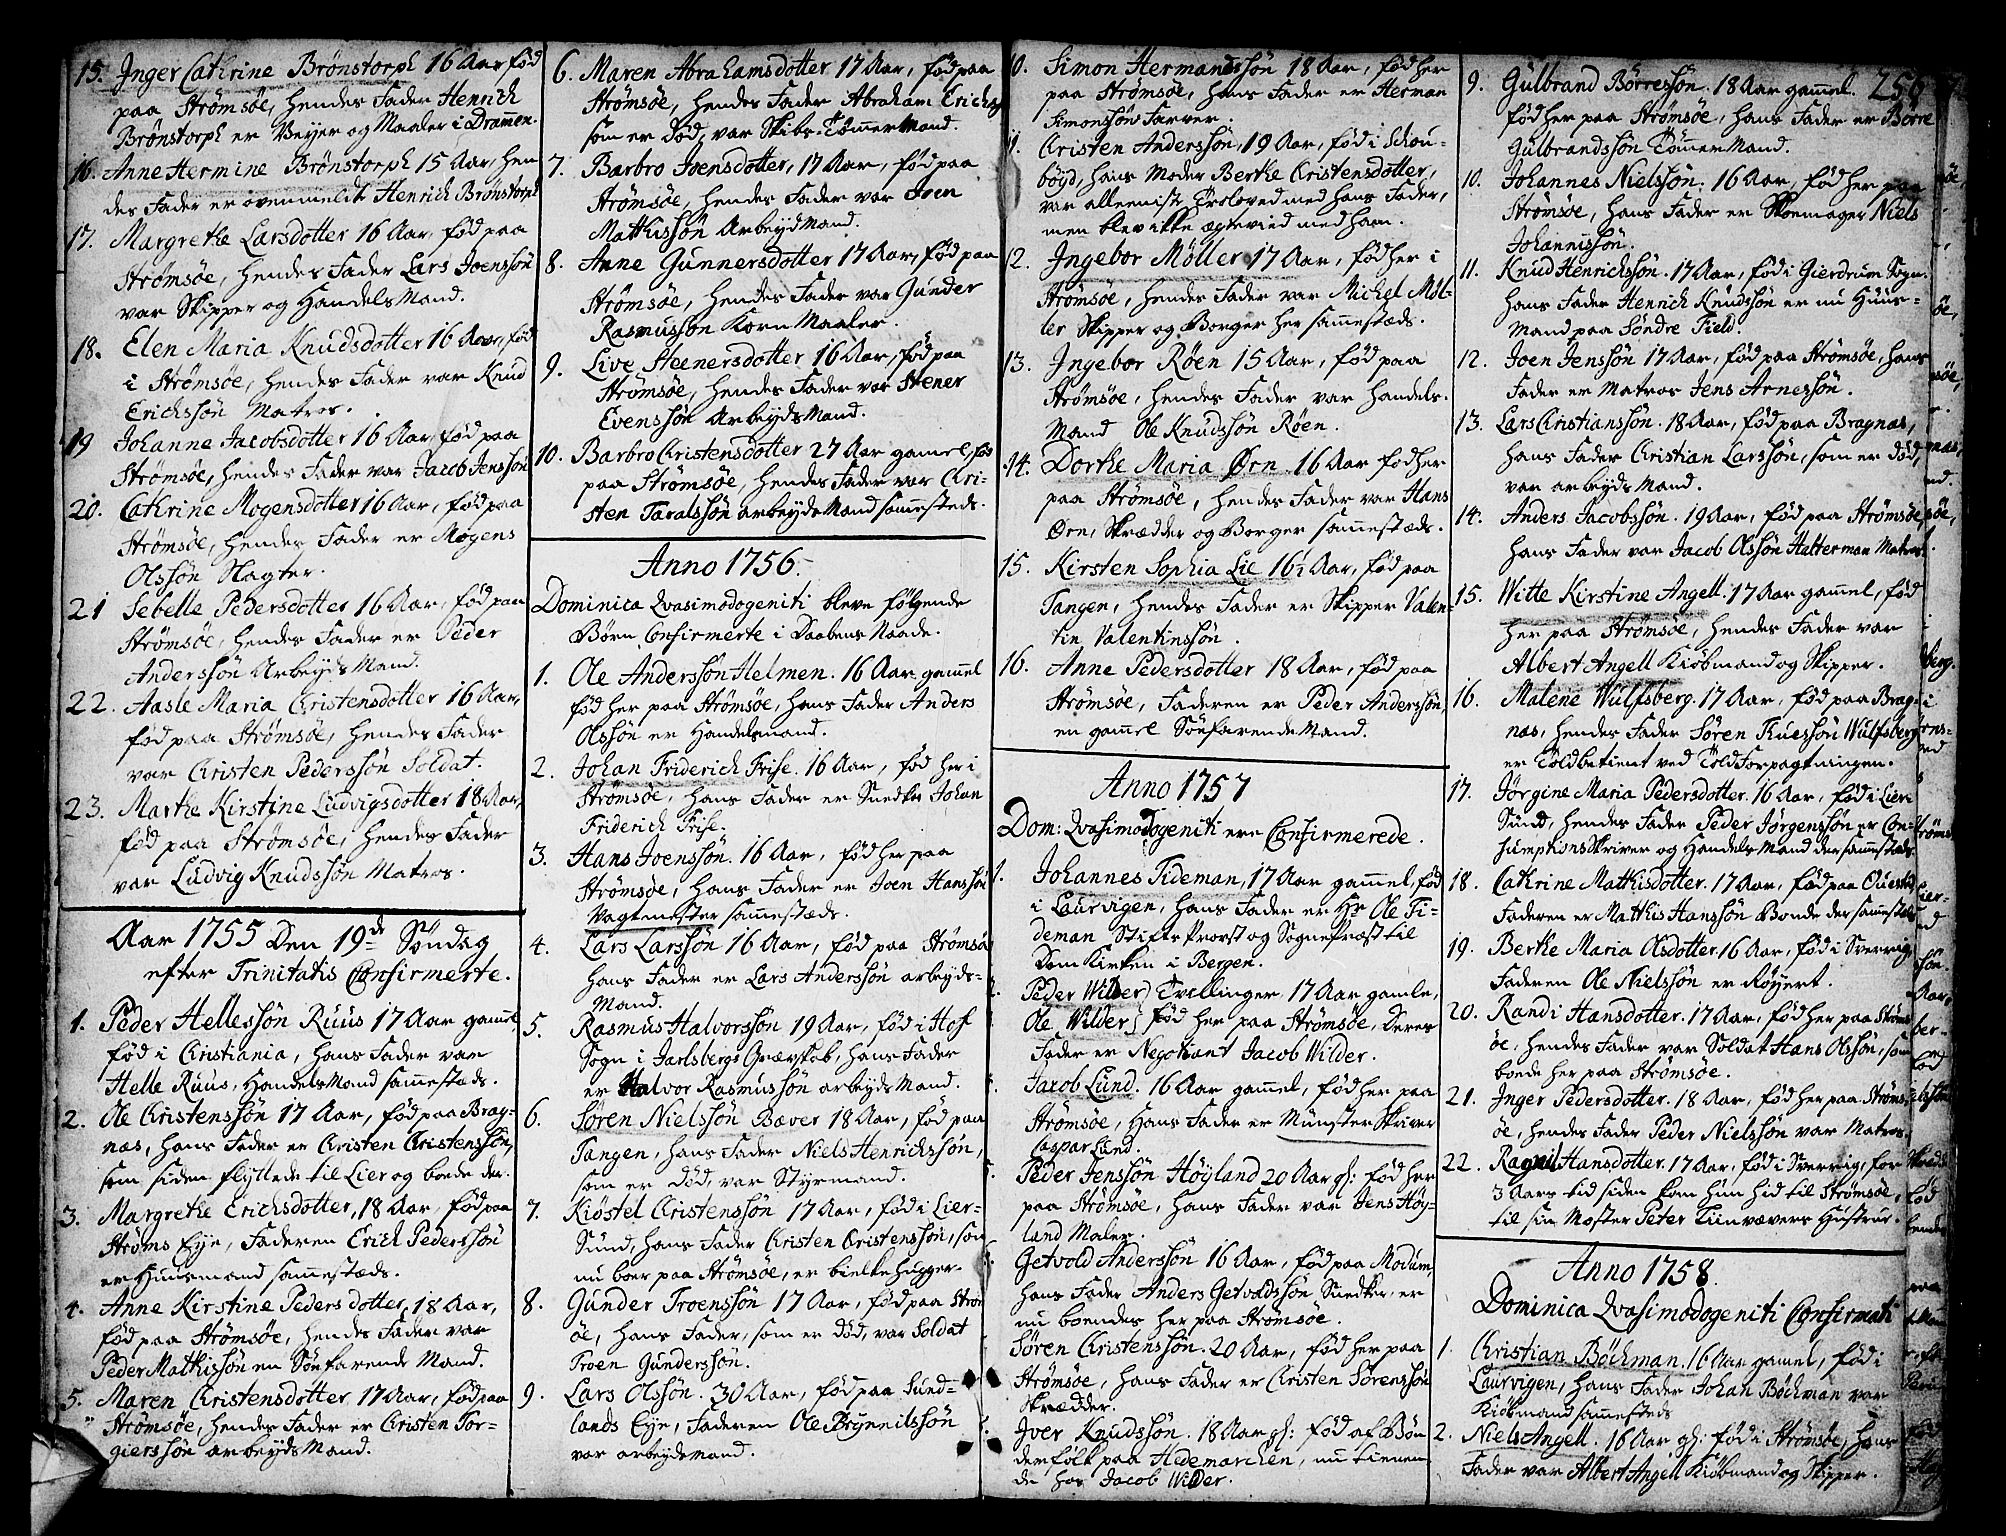 15. Inger Cathrine Brönstorph 16 Aar, fød
paa Strömsöe, hendes Fader Henrich
Brönstorph er Veyer og Maaler i Drammen.
16. Anne Hermine Brönstorph 15 Aar, hen
des Fader er ovenmeldte Henrich Brönstorph
17. Margrethe Larsdotter 16 Aar, fød paa
Strömsöe, hendes Fader Lars Joenssön
var Skipper og Handels Mand.
18. Elen Maria Knudsdotter 16 Aar, fød
i Strömsöe, hendes Fader var Knud
Erichssön Matros.
19 Johanne Jacobsdotter 16 Aar, fød paa
Strömsöe, hendes Fader var Jacob Jenssön
20. Cathrine Mogensdotter 16 Aar, fød paa
Strömsöe, hendes Fader er Mogens
Olssön Slagter.
21 Sebelle Pedersdotter 16 Aar, fød paa
Strömsöe, hendes Fader er Peder
Anderssön Arbeyds Mand.
22. Aasle Maria Christensdotter 16 Aar,
fød paa Strömsöe, hendes Fader
var Christen Pederssön Soldat.
23. Marthe Kirstine Ludvigsdotter 18 Aar,
fød paa Strömsöe, hendes Fader
var Ludvig Knudssön Matros.
Aar 1755 Den 19de Söndag
efter Trinitatis Confirmerte.
1. Peder Hellessön Ruus 17 Aar gamel
fød i Christiania, hans Fader var
Helle Ruus, Handels Mand sammestæds.
2. Ole Christenssön 17 Aar, fød paa Brag-
nas, hans Fader er Christen Christenssön,
som siden flyttede til Lier og boede der.
3. Margrethe Erichsdotter, 18 Aar, fød paa
Ströms Eye, Faderen Erich Pederssön
er Huusmand sammestæds.
4. Anne Kirstine Pedersdotter, 18 Aar,
fød paa Strömsöe, hendes Fader var
Peder Mathissön en Söefarende Mand.
5. Maren Christensdotter, 17 Aar, fød paa
Strömsöe, hendes Fader er Christen Tor-
gierssön arbeyds Mand.
6. Maren Abrahamsdotter 17 Aar, fød paa
Strömsöe, hendes Fader Abraham Erichs
som er død, var Skibs-Tömmer Mand.
7. Barbro Joensdotter, 17 Aar, fød paa
Strömsöe, hendes Fader var Joen
Mathissön Arbeyd Mand.
8. Anne Gunnersdotter 17 Aar, fød paa
Strömsöe, hendes Fader var Gunder
Rasmussön Korn Maaler.
9. Live Steenersdotter 16 Aar, fød paa
Strömsöe, hendes Fader var Stener
Evenssön Arbeyds Mand.
10. Barbro Christensdotter 27 Aar gamel, fød
paa Strömsöe, hendes Fader var Chri-
sten Taralssön arbeyds Mand sammesteds.
Anno 1756.
Dominica Qvasimodogeniti bleve følgende
Børn Confirmerte i Daabens Naade.
1. Ole Anderssön Helmen. 16 Aar gammel
fød her paa Strömsöe, hans Fader Anders
Olssön er Handelsmand.
2. Johan Friderich Frise. 16 Aar, fød her i
Strömsöe, hans Fader er Snedker Johan
Friderich Frise.
3. Hans Joenssön. 16 Aar, fød her paa
Strömsöe, hans Fader er Joen Hanssön
Vagtmester sammestæds.
4. Lars Larssön 16 Aar, fød paa Strömsö
hans Fader er Lars Anderssön arbeyds-
Mand.
5. Rasmus Halvorssön 19 Aar, fød i Hof
Sogn i Jarlsbergs Grævskab, hans Fader
er Halvor Rasmussön arbeyds Mand.
6. Sören Nielssön Bæver 18 Aar, fød paa
Tangen, hans Fader Niels Henrichssön,
som er død, var Styrmand.
7. Kiöstel Christenssön 17 Aar, fød i Lier-
Sund, hans Fader Christen Christenssön, som
nu boer paa Strömsöe, er bielkehugger.
8. Gunder Troenssön 17 Aar, fød paa Ström
öe, hans Fader, som er død, var Soldat
Troen Gunderssön.
9. Lars Olssön. 30 Aar, fød paa Sund-
lands Eye, Faderen Ole Brynnilssön
var arbeydsmand.
10. Simon Hermanssön 18 Aar, fød her
paa Strömsöe, hans Fader er Herman
Simonssön Farver.
11. Christen Anderssön, 19 Aar, fød i Schou-
böyd, hans Moder Berthe Christensdotter,
var alleeniste Troloved med hans Fader,
men blev ikke ægteviet med ham.
12. Ingebor Möller 17 Aar, fød her i
Strömsöe, hendes Fader var Michel Möl-
ler Skipper og Borger her sammestæds.
13. Ingebor Röen 15 Aar, fød paa
Strömsöe, hendes Fader var Handels-
Mand Ole Knudssön Röen.
14. Dorthe Maria Ørn. 16 Aar fød her
paa Strömsöe, hendes Fader var Hans
Ørn, Skrædder og Borger sammestæds.
15. Kirsten Sophia Lie 16½ Aar, fød paa
Tangen, hendes Fader er Skipper Valen-
tin Valentinssön.
16. Anne Pedersdotter 18 Aar, fød paa
Strömsöe, Faderen er Peder Anderssön,
en gammel Söefarende Mand.
Anno 1757
Dom: Qvasimodogeniti ere Confirmerede.
1. Johannes Tideman, 17 Aar gammel, fød
i Laurvigen, hans Fader er Hr Ole Ti-
deman Stifts Provst og Sognepræst til
Dom Kirken i Bergen.
Peder Wilder) Tvillinger 17 Aar gamle,
Ole Wilder) fød her paa Strömsöe, Deres
Fader er Negotiant Jacob Wilder.
Jacob Lund. 16 Aar gammel, fød her paa
Strömsöe, hans Fader er Mynster Skriver
Caspar Lund.
Peder Jenssön Höyland 20 Aar gl: fød her
paa Strömsöe, hans Fader var Jens Höy-
land Maler.
Getvold Anderssön 16 Aar, fød paa Modum,
hans Fader Anders Getvoldssön Snedker, er
nu boendes her paa Strömsöe.
Sören Christenssön. 20 Aar, fød her paa
Strömsöe, hans Fader er Christen Sörenssön
Skrædder.
Iver Knudssön. 18 Aar gl: fød af Bön
derfolk paa Hedemarchen, nu tienen
de hos Jacob Wilder.
9. Gulbrand Börressön. 18 Aar gammel. 256
fød her paa Strömsöe, hans Fader er Börre
Gulbrandssön Tömer Mand.
10. Johannes Nielssön. 16 Aar, fød her paa
Strömsöe, hans Fader er Skomager Niels
Johannissön.
11. Knud Henrichssön. 17 Aar, fød i Gierdrum Sogn.
hans Fader Henrich Knudssön er nu Huus-
Mand paa Søndre Field.
12. Joen Jenssön 17 Aar, fød paa Strömsöe, hans
Fader er Matros Jens Arnessön.
13. Lars Christianssön. 18 Aar, fød paa Bragnas,
hans Fader Christian Larssön, som er död,
var arbeyds Mand.
14. Anders Jacobssön. 19 Aar, fød paa Strömsöe,
hans Fader var Jacob Olssön Halterman Matros.
15. Witte Kirstine Angell. 17 Aar gammel, fød
her paa Strömsöe, hendes Fader var
Albert Angell Kiöbmand og Skipper.
16. Malene Wulfsberg. 17 Aar, fød paa Brag-
nas, hendes Fader Sören Wulfsberg
er Toldbetient ved Told Forpagtningen.
17. Jörgine Maria Pedersdotter. 16 Aar, fød i Lier
Sund, hendes Fader Peder Jörgenssön er Con-
sumptions Skriver og Handels Mand der sammestæds
18. Cathrine Mathisdotter. 17 Aar, fød paa
Faderen er Matthis Hanssön Bonde der sammesteds
19. Berthe Maria Olsdotter. 16 Aar, fød i Sverrig
Faderen Ole Nielssön er Röyert.
20. Randi Hansdotter. 17 Aar, fød her paa Ströms
öe, hendes Fader var Soldat Hans Olssön, som
boede her paa Strömsöe.
21. Inger Pedersdotter. 18 Aar, fød her paa Ströms
öe, hendes Fader Peder Nielssön var Matros.
22. Ragnil Hansdotter. 17 Aar, fød i Sverrig, for
3 Aars tid siden kom hun hid til Strömsöe,
til sin Moster Peter Linvævers Hustrue.
Anno 1758.
Dominica Qvasimodogeniti Confirmati
1. Christian Böckman. 16 Aar gamel, fød i
Laurvigen, hans Fader Johan Böckman var
Kiöbmand sammesteds
2. Niels Angell. 16 Aar gl: fød i Strömsöe, hans
Fader var Albert Angell Kiöbmand og Skipper.